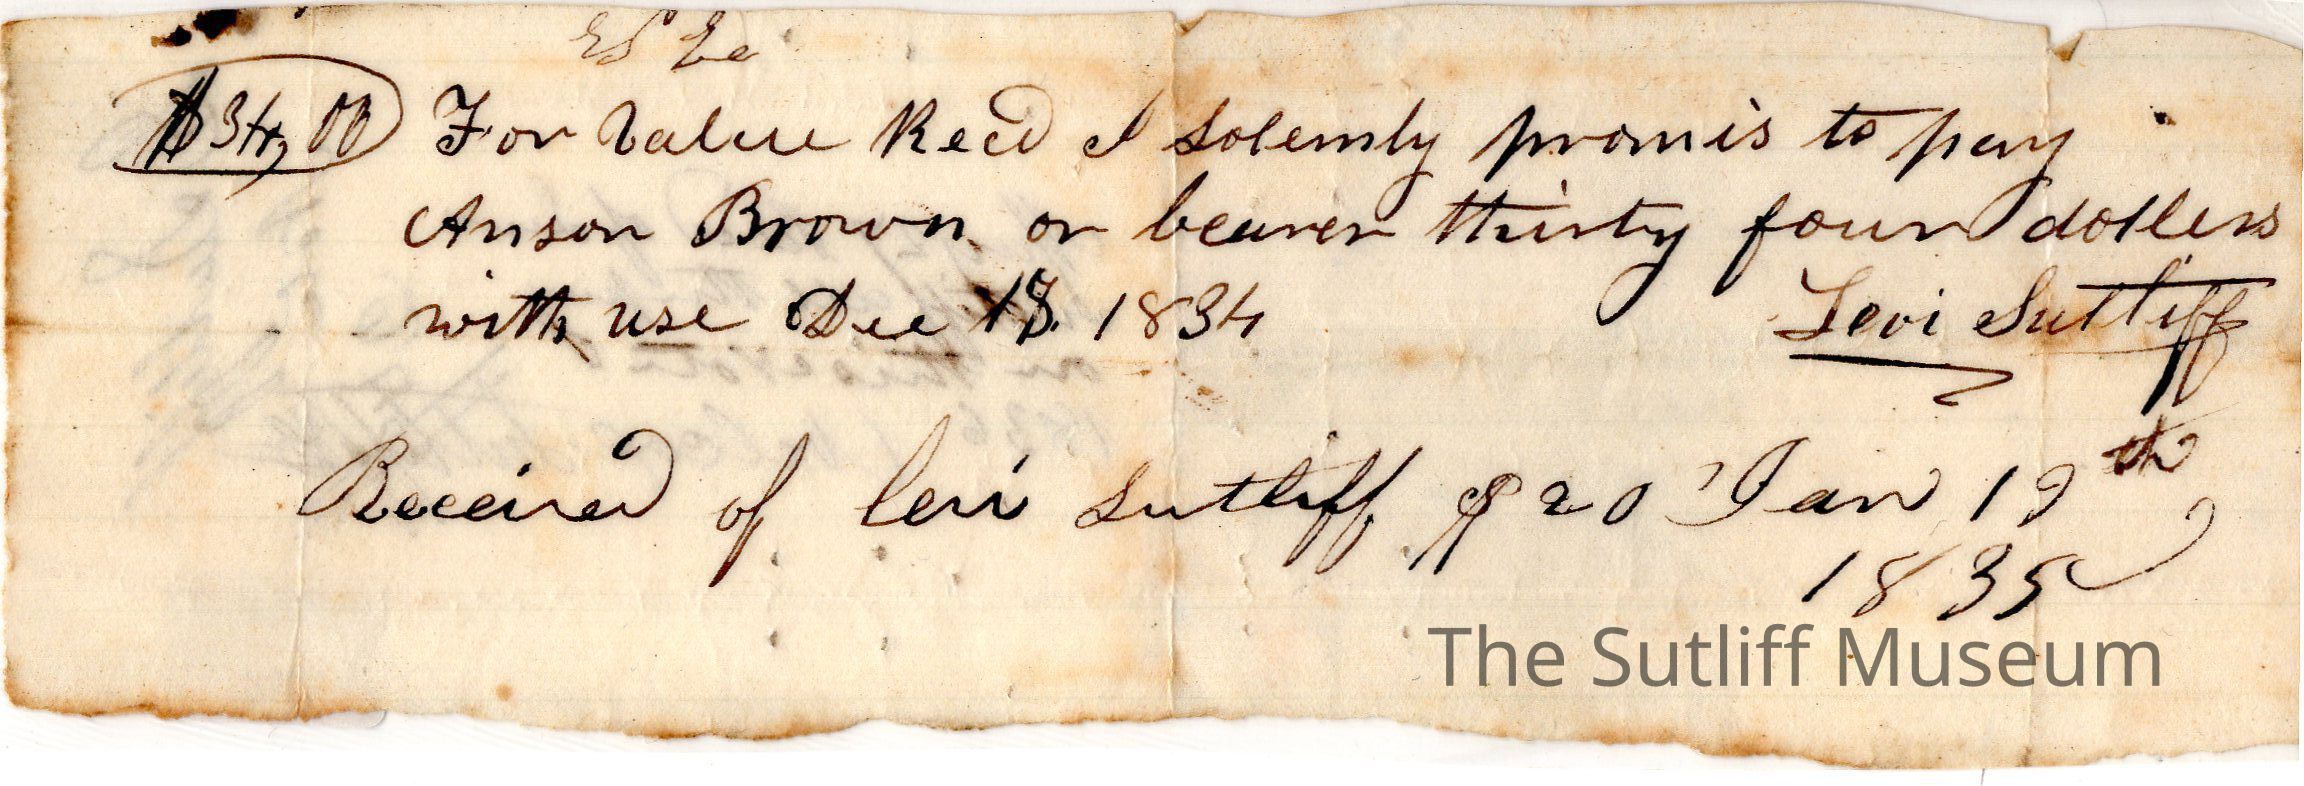 $34,00 For Value Recd I solemly promis to pay
Anson Brown or bearer thirty four dollers
with use Dec 18. 1834 Levi Sutliff
Received of levi sutliff $20 Jan 19th
1835
The Sutliff Museum